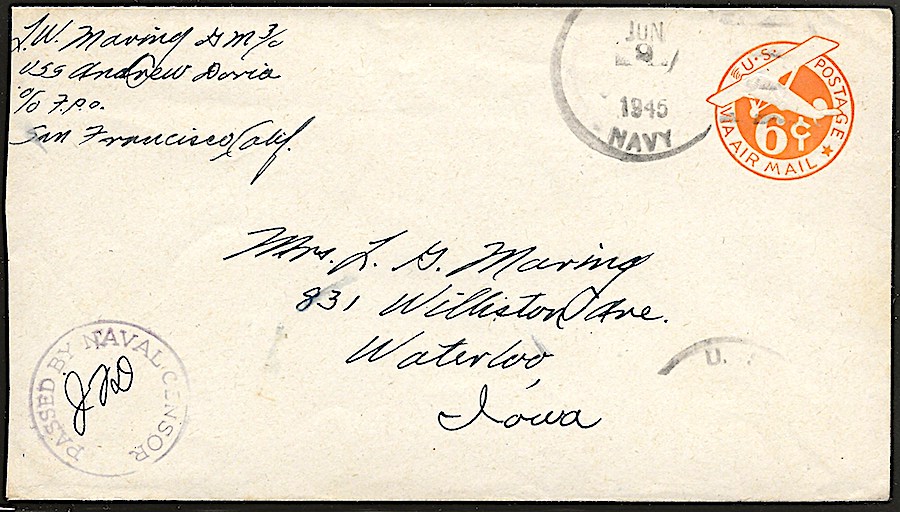 L.W. Maring G M 3/c
USS Andrew Doria
c/o F.P.O.
San Francisco, Calif.
JUN
9
1945
NAVY
U.S. POSTAGE
6¢
VIA AIR MAIL
Mrs. L. G. Maring
831 Williston Ave.
Waterloo,
Iowa
PASSED BY NAVAL CENSOR
U.